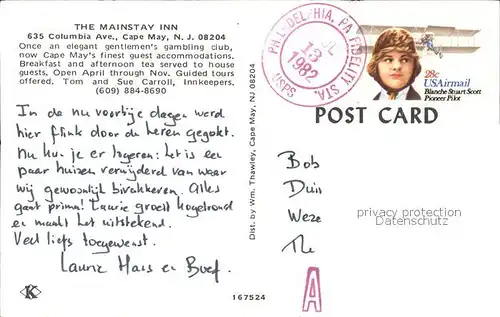 THE MAINSTAY INN
635 Columbia Ave., Cape May, N. J. 08204
Once an elegant gentlemen's gambling club,
now Cape May's finest guest accommodations.
Breakfast and afternoon tea served to house
guests. Open April through Nov. Guided tours
offered. Tom and Sue Carroll, Innkeepers.
(609) 884-8690
In de nu voorbije dagen werd
hier flink door de heren gegokt.
Nu kun je er logeren: het is een
paar huizen verwijderd van waar
wij gewoonlijk bivakkeren. Alles
gaat prima! Laurie groeit
en maakt het uitstekend.
Veel liefs toegewenst.
Laurie Hans en
Dist. by Wm. Thawley, Cape May, NJ 08204
167524
K
PHILADELPHIA, PA FIDELITY STA.
JUL
13
1982
USPS
28c
USAirmail
Blanche Stuart Scott
Pioneer Pilot
POST CARD
Bob
Duin
Weze
The
A
privacy protection
Datenschutz